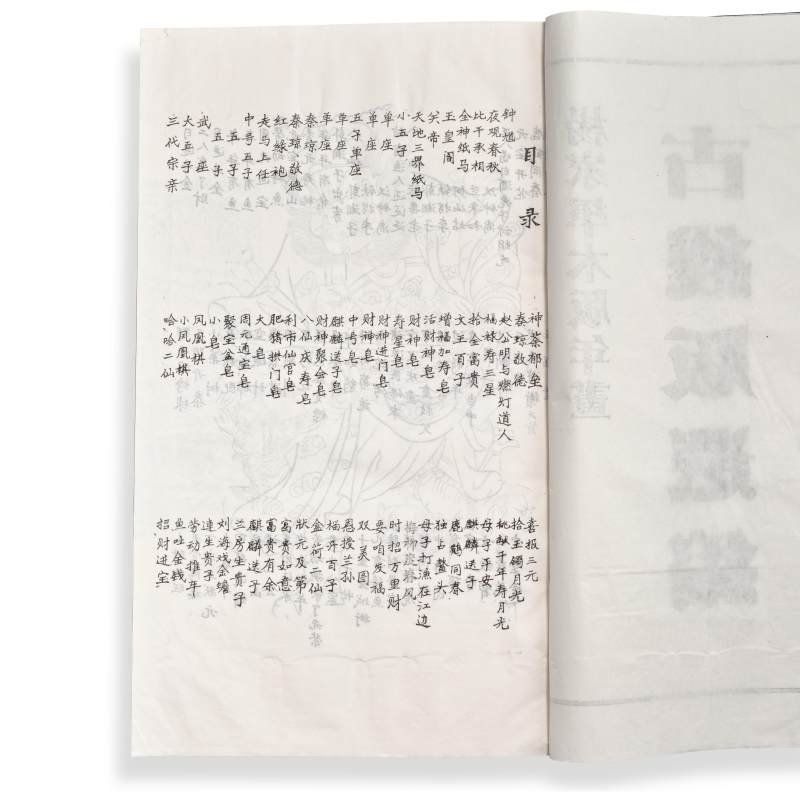 目录
钟馗
夜观春秋
比干承相
金神纸马
王皇阁
关帝
天地三界纸马
小五子
单座
单座
五子单座
单座
单座
秦琼
秦琼、敬德
红绿袍
走马上任
中号五子
五子
五子
武座
大百五子
三代宗亲
神荼郁垒
秦琼敬德
赵公明与燃灯道人
福禄寿三星
拾金富贵
文王百子
增福加寿皂
活财神皂
财神皂
寿星皂
财神进门皂
财神皂
中号皂
麒麟送子皂
财神聚会皂
八仙庆寿皂
利市仙官皂
肥猪拱门皂
大皂
周元通宝皂
聚宝盆皂
小皂
凤凰棋
小凤凰棋
哈哈二仙
喜报三元
拾玉镯月光
桃献千年寿月光
母子平安
麒麟送子
鹿鹤同春
独占鳌头
母子打渔在江边
春风
时招万里财
要咱发福
双美图
恩授兰孙
榴开百子
盒荷二仙
状元及第
富贵如意
富贵有余
麒麟送子
兰房生贵子
刘海戏金蟾
连生贵子
劳动推年
鱼吐金钱
招财进宝